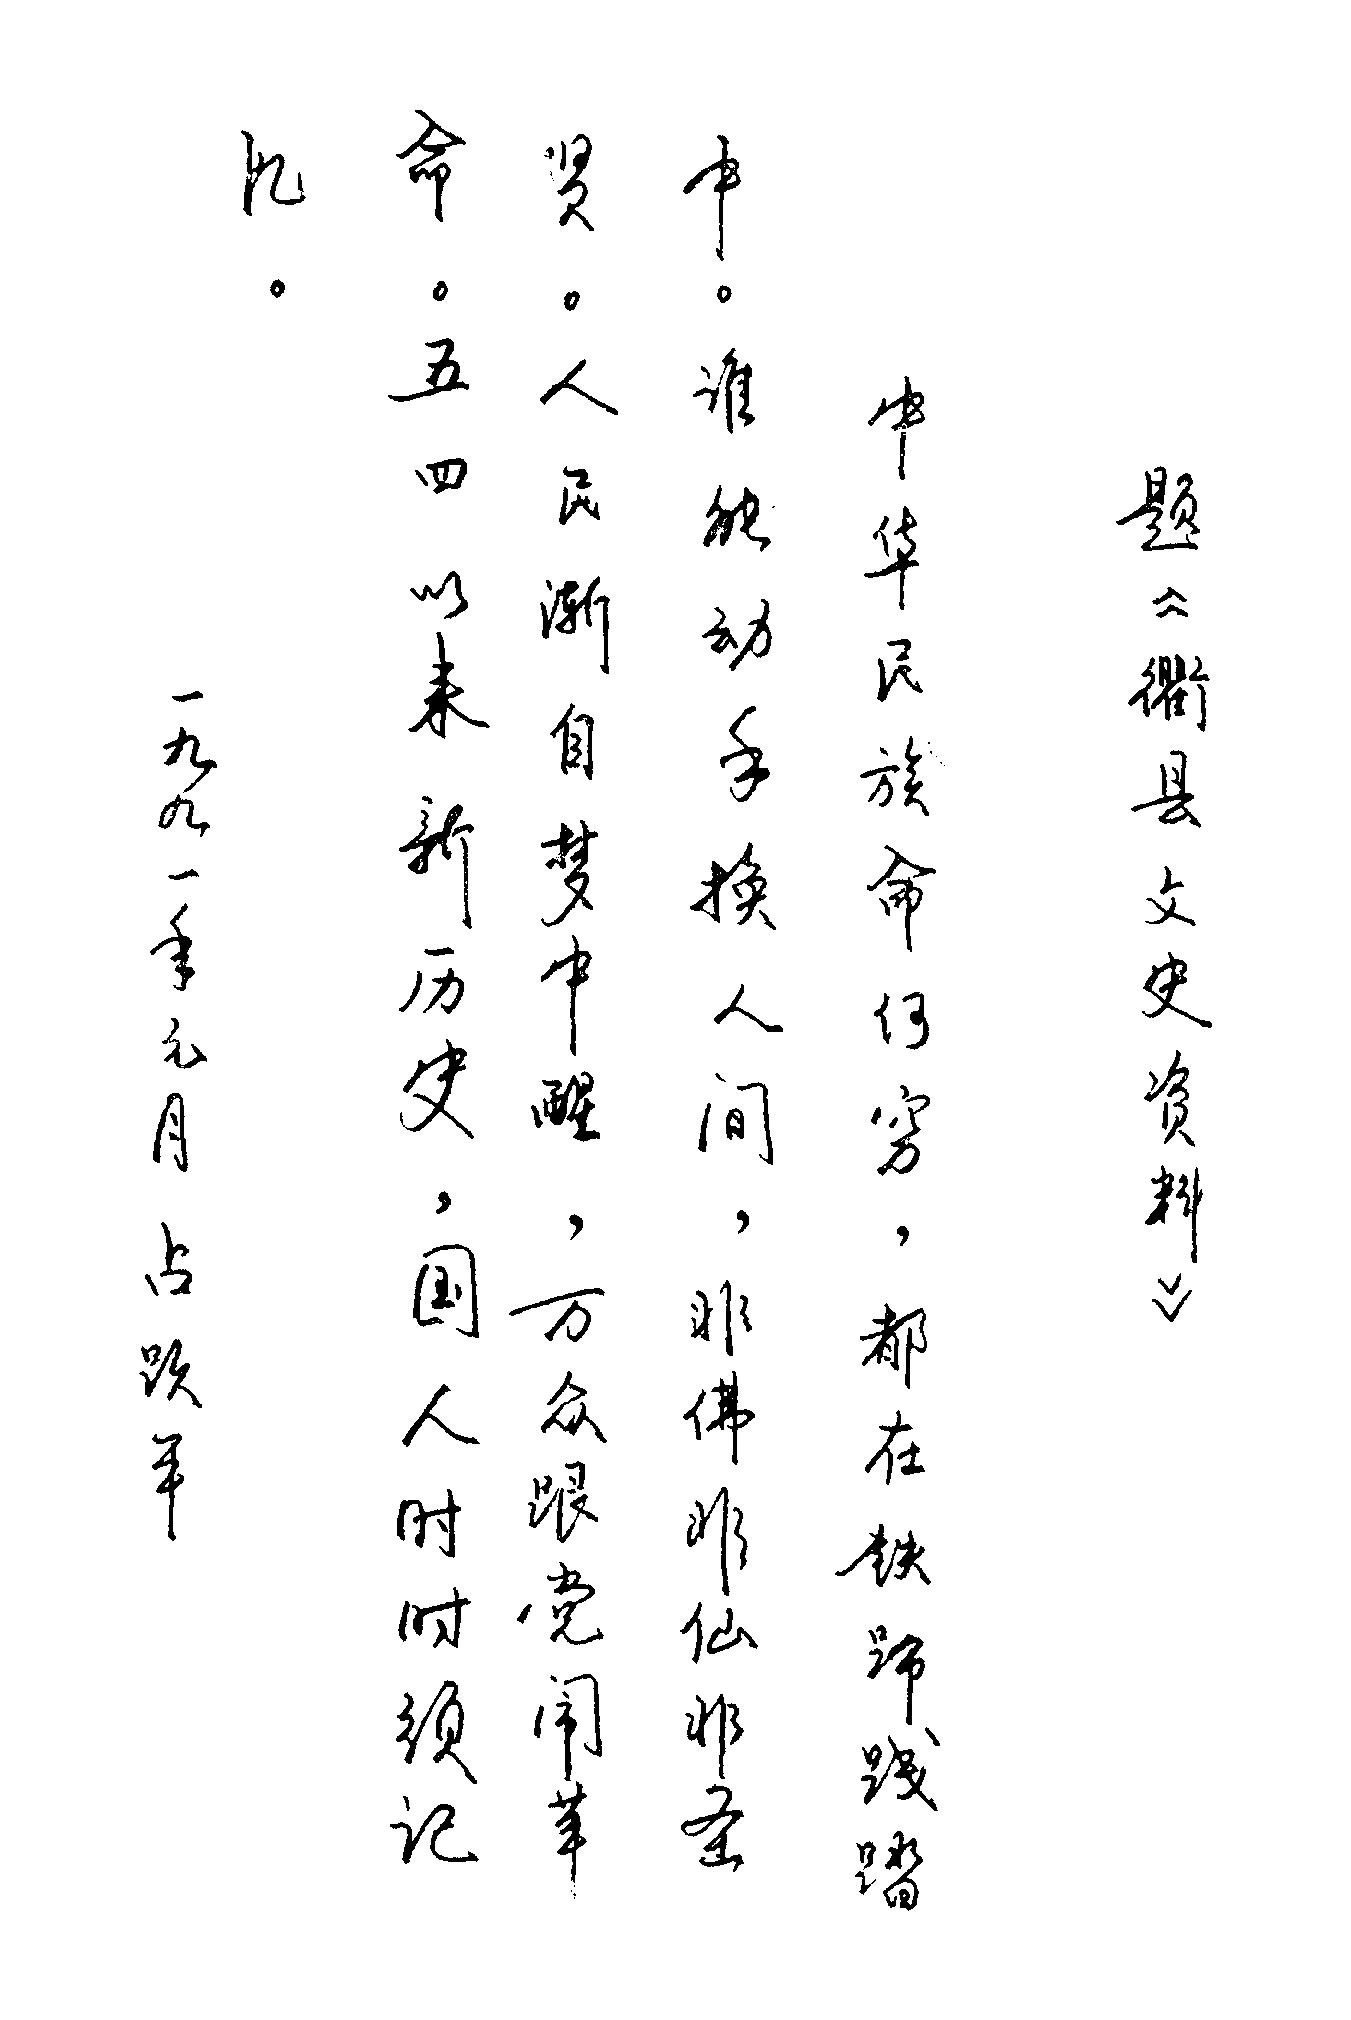 题《衢县文史资料》
中华民族命何穷，都在铁蹄践踏
中。谁能动手换人间，非佛非仙非圣
贤。人民渐自梦中醒，万众跟党闹革
命。五四以来新历史，国人时时须记
忆。
一九九一年元月占跃